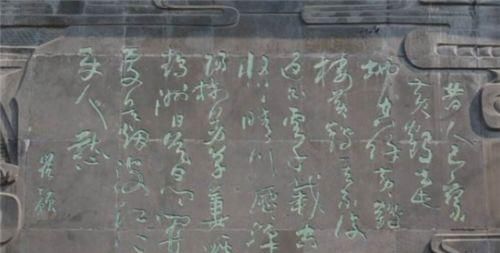 昔人已乘
黄鹤去
此地空余黄鹤
楼黄鹤一去不复
返白云千载空
悠悠晴川历历汉
阳树芳草萋萋鹦
鹉洲日暮乡关何
处是烟波江上
使人愁
崔颢